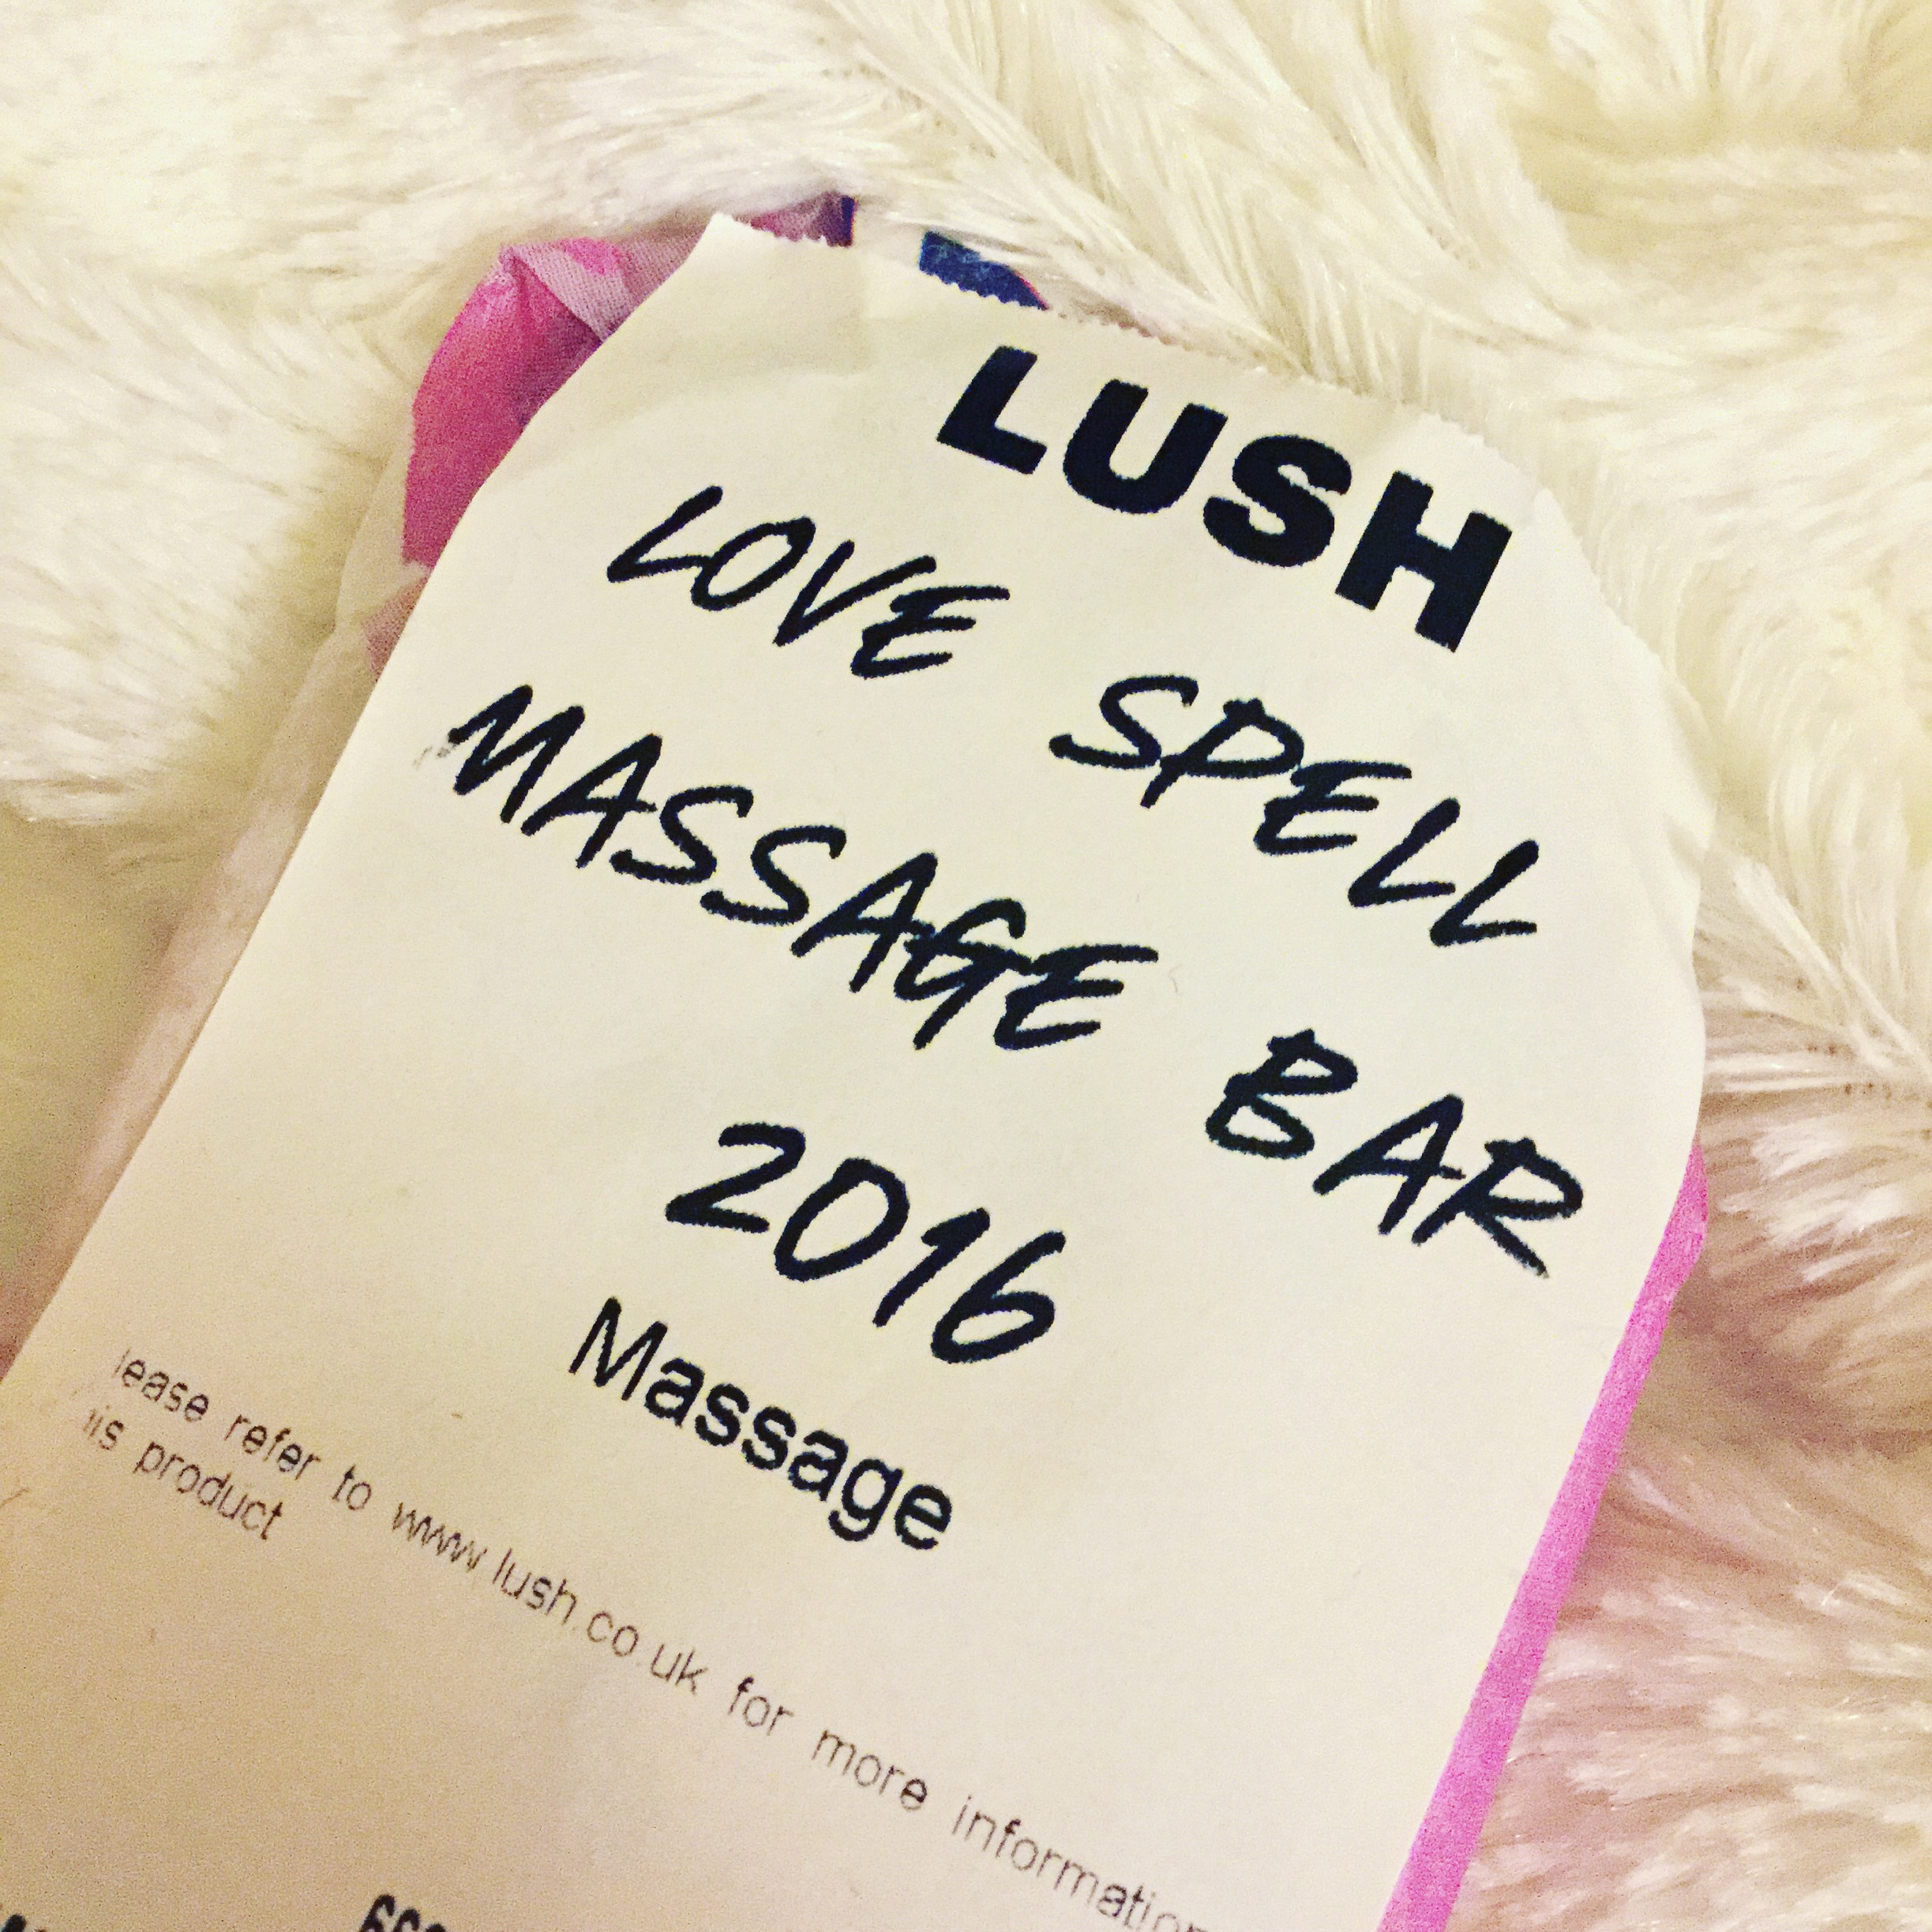 LUSH
LOVE SPELL
MASSAGE BAR
2016
Massage
lease refer to www.lush.co.uk for more information
his product